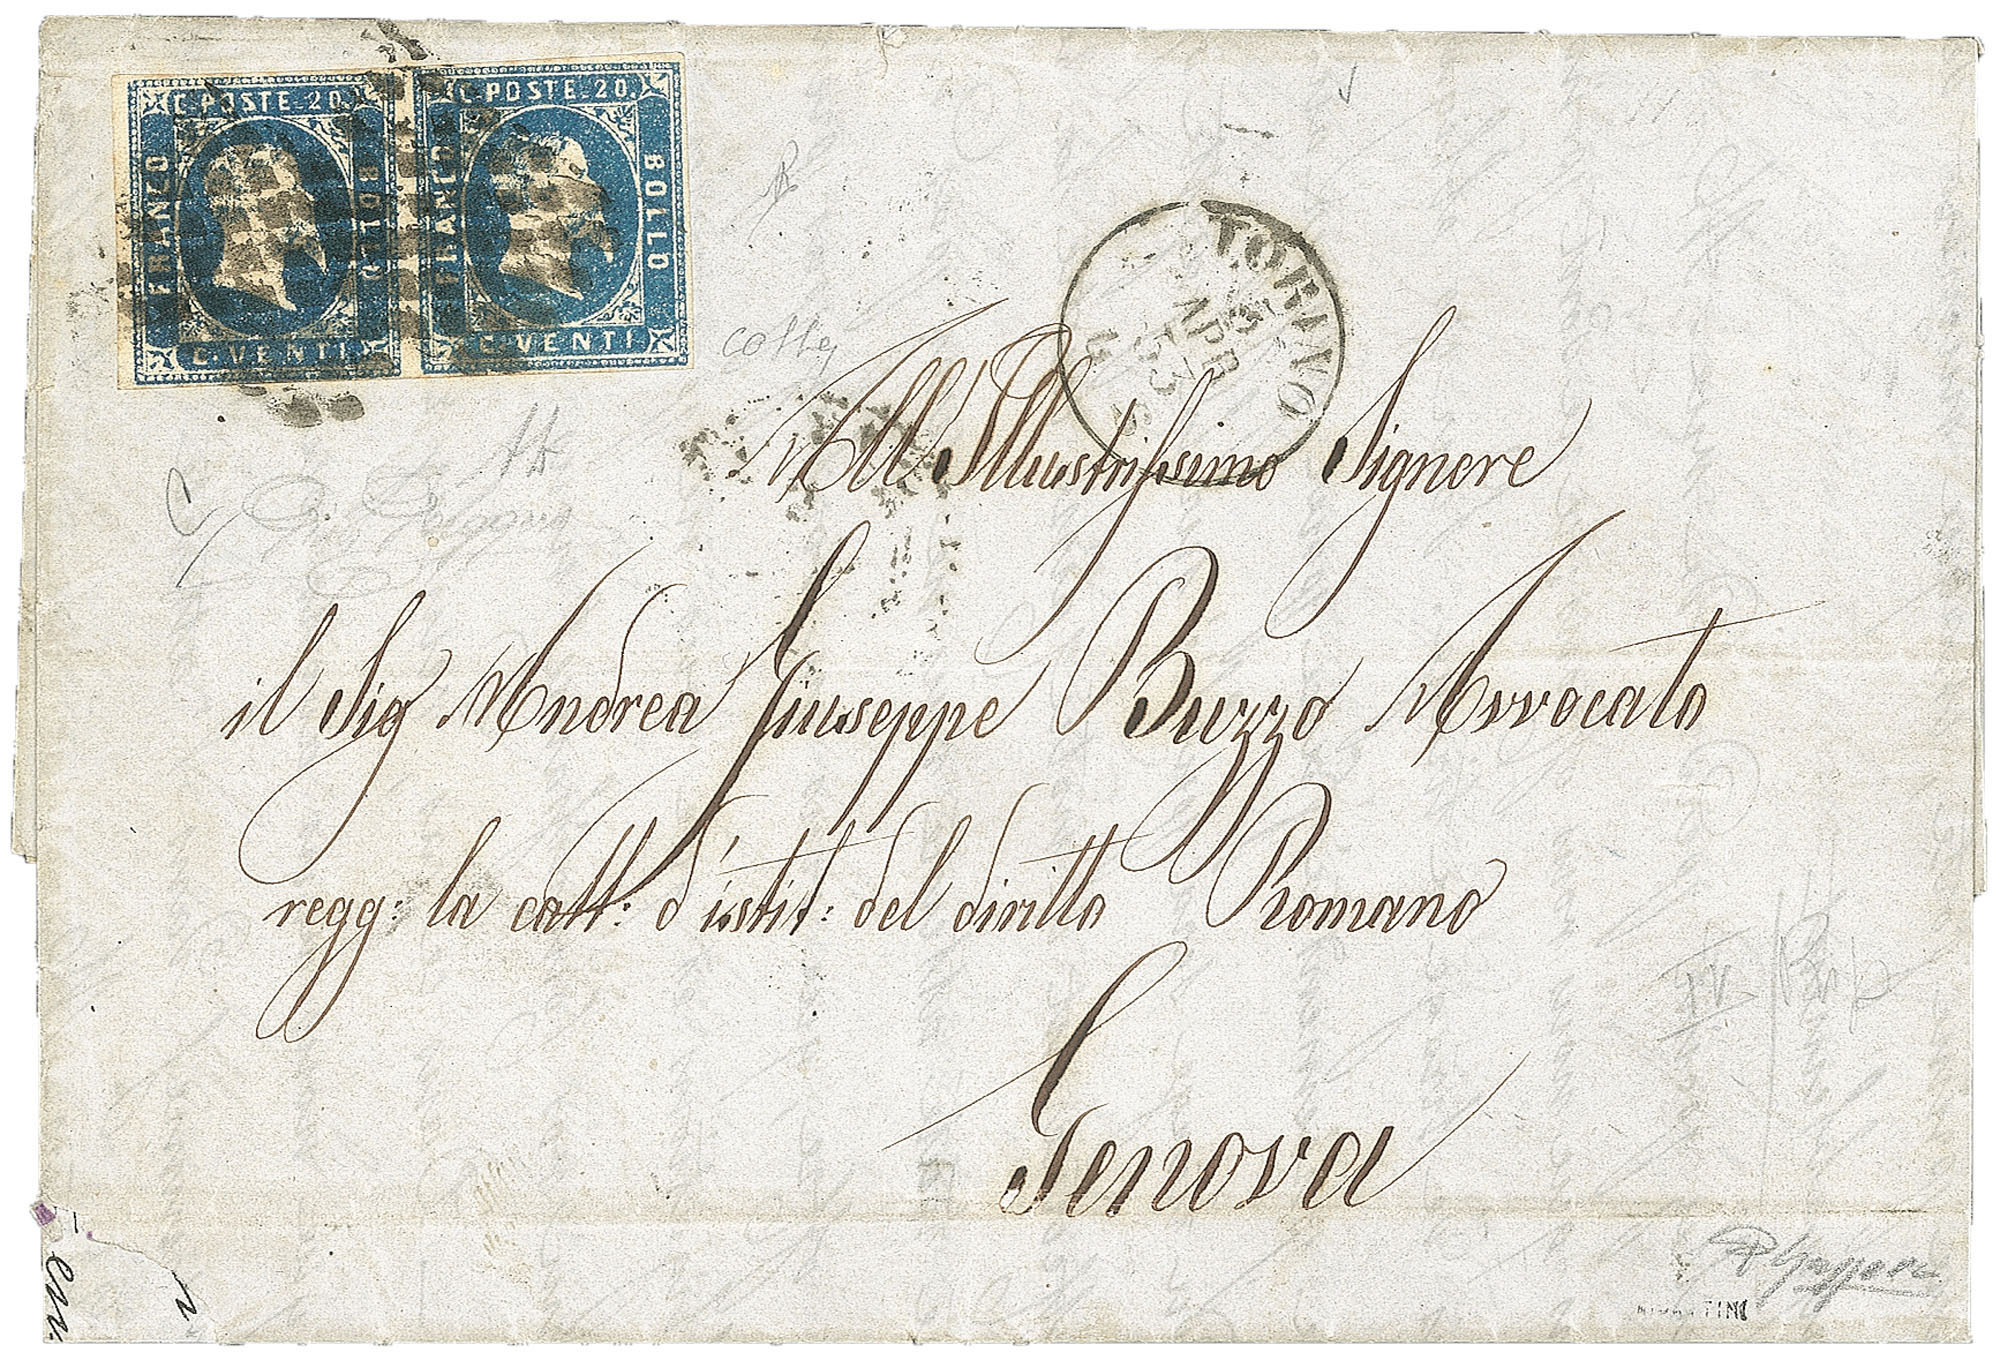 C. POSTE. 20. C. POSTE. 20.
FRANCO BOLLO FRANCO BOLLO
C. VENTI C. VENTI
TORINO
3
APR
53
colle
All'Illustrissimo Signore
il Sig Andrea Giuseppe Buzzo Avvocato
regg: la catt: d'istit: del diritto Romano
Genova
IV